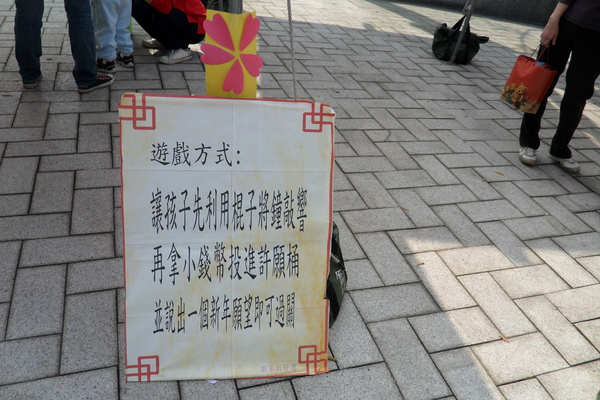 遊戲方式：
讓孩子先利用棍子將鐘敲響
再拿小錢幣投進許願桶
並說出一個新年願望即可過關